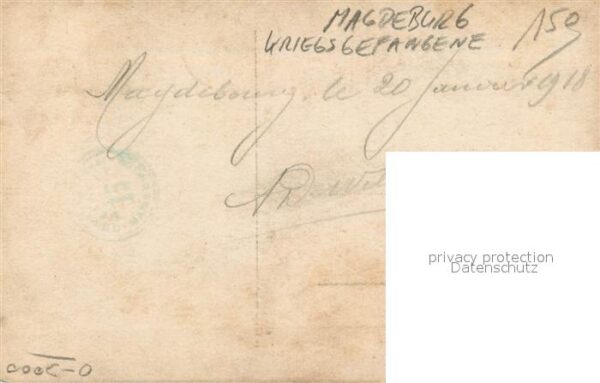 MAGDEBURG
KRIEGSGEFANGENE
150
Magdebourg, le 20 Janvier 1918
privacy protection
Datenschutz